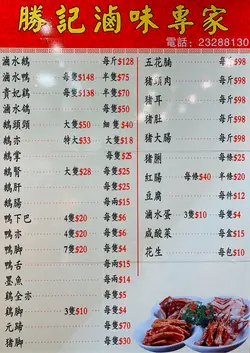 勝記滷味專家
電話：23288130
滷水鵝 每斤$128
滷水鴨 每隻$148 半隻$75
貴妃鷄 每隻$138 半隻$70
滷水鵝 每隻$50
鵝頭頭 大隻$50 細隻$40
鵝亦 特大$33 大隻$18
鵝掌 每隻$25
鵝腎 大隻$28 每隻$25
鵝肝 每隻$25
鵝腸 每両$15
鴨下巴 4隻$20 每隻$6
鴨亦 4隻$20 每隻$6
鴨脚 7隻$20 每隻$4
鴨舌 每両$15
墨魚 每両$14
鷄全亦 每隻$6
鷄脚 3隻$10 每隻$4
元蹄 每隻$70
猪脚 每隻$30
五花腩 每斤$98
猪頭肉 每斤$98
猪耳 每斤$98
猪肚 每斤$98
猪大腸 每斤$98
猪脷 每隻$25
紅腸 每條$40 半條$20
豆腐 每件$12
滷水蛋 3隻$10 每隻$4
咸酸菜 每盒$15
花生 每包$10